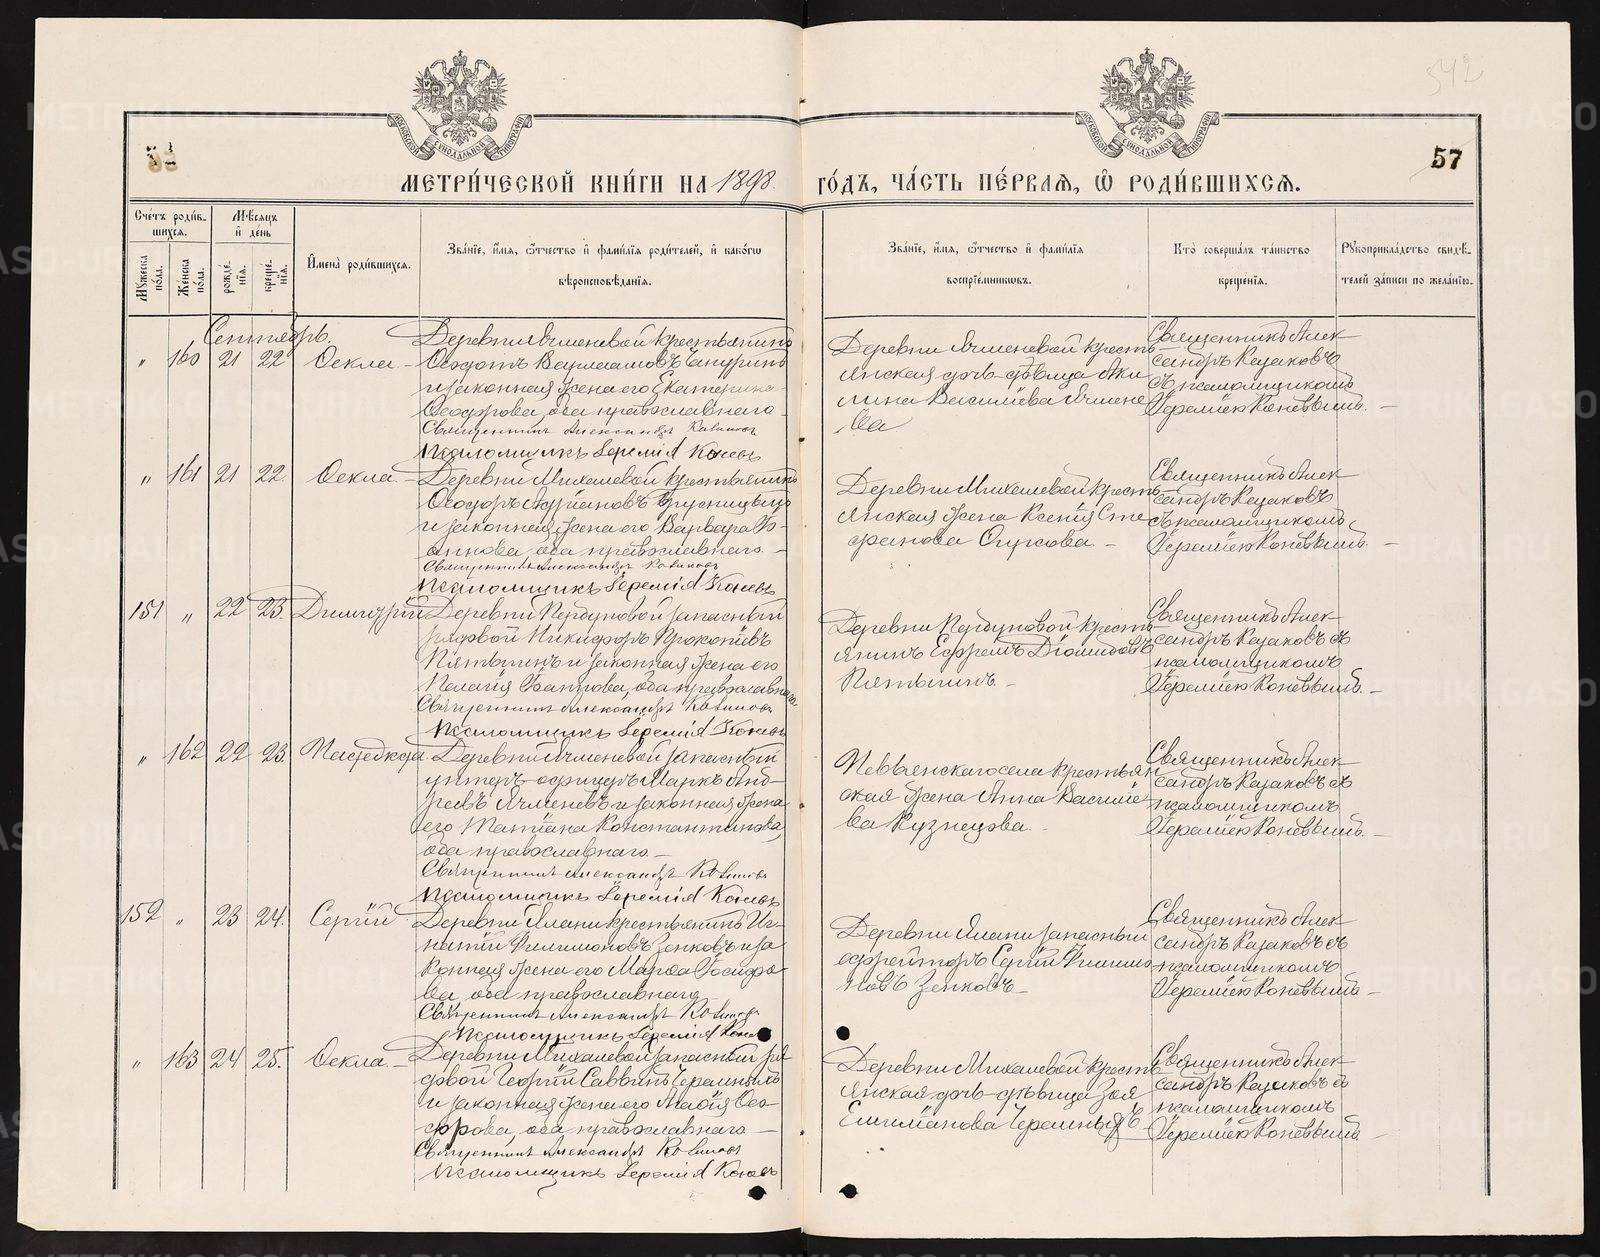 542
57
МЕТРИ́ЧЕСКОЙ КНИ́ГИ НА 1898 ГО́ДЪ, ЧА́СТЬ ПЕ́РВАЯ, Ѽ РОДИ́ВШИХСЯ.
Сче́тъ роди́в-
шихся.
Мѣ́сяцъ
и҆ де́нь
Му́жеска
по́ла.
Же́нска
по́ла.
рожде́-
нїя.
креще́-
нїя.
И҆мена̀ роди́вшихся.
Зва́нїе, и҆́мя, ѻ҆́тчество и҆ фами́лїя роди́телей, и҆ како́гѡ
вѣроисповѣ́данїя.
Зва́нїе, и҆́мя, ѻ҆́тчество и҆ фами́лїя
воспрїе́мниковъ.
Кто̀ соверша́лъ та́инство
креще́нїя.
Рꙋкоприкла́дство свидѣ́-
телей за́писи по жела́нїю.
Сентябрь.
" 160 21 22 Ѳекла
Деревни Ячменевой крестьянинъ
Ѳеодотъ Варлаамовъ Чапуринъ
и законная жена его Екатерина
Ѳеодорова, оба православнаго
Священникъ Александръ Казаковъ
Псаломщикъ Іеремія Коневъ
Деревни Ячменевой кресть-
янская дочь-дѣвица Аки-
лина Василіева Ячмене-
ва
Священникъ Алек-
сандръ Казаковъ
съ псаломщикомъ
Іереміею Коневымъ.
" 161 21 22. Ѳекла
Деревни Михалевой крестьянинъ
Ѳеодоръ Андріановъ
и законная жена его Варвара
оба православнаго.
Священникъ Александръ Казаковъ
Псаломщикъ Іеремія Коневъ
Деревни Михалевой кресть-
янская жена Ксенія Сте-
фанова
Священникъ Алек-
сандръ Казаковъ
съ псаломщикомъ
Іереміею Коневымъ.
151 " 22 23. Димитрій
Деревни запасный
рядовой Никифоръ Прокопіевъ
Пятыгинъ и законная жена его
Пелагія оба православнаго
Священникъ Александръ Казаковъ
Псаломщикъ Іеремія Коневъ
Деревни кресть-
янинъ Ефремъ Діомидовъ
Пятыгинъ
Священникъ Алек-
сандръ Казаковъ съ
псаломщикомъ
Іереміею Коневымъ.
" 162 22 23.
Деревни Ячменевой запасный
унтеръ-офицеръ Маркъ Анд-
реевъ Ячменевъ и законная жена
его Татіана Константинова,
оба православнаго.
Священникъ Александръ Казаковъ
Псаломщикъ Іеремія Коневъ
Невьянскаго села крестьян-
ская жена Анна Василіе-
ва Кузнецова
Священникъ Алек-
сандръ Казаковъ съ
псаломщикомъ
Іереміею Коневымъ.
152 " 23 24. Сергій
Деревни Ялани крестьянинъ Иг-
натій Филимоновъ Зенковъ и за-
конная жена его Марѳа Іосифо-
ва, оба православнаго
Священникъ Александръ Казаковъ
Псаломщикъ Іеремія Коневъ
Деревни Ялани запасный
ефрейторъ Сергій Филимо-
новъ Зенковъ
Священникъ Алек-
сандръ Казаковъ съ
псаломщикомъ
Іереміею Коневымъ
" 163 24 25. Ѳекла
Деревни Михалевой запасный ря-
довой Георгій Саввинъ Черемныхъ
и законная жена его Ѳео-
дорова, оба православнаго
Священникъ Александръ Казаковъ
Псаломщикъ Іеремія Коневъ
Деревни Михалевой кресть-
янская дочь-дѣвица Зоя
Черемныхъ
Священникъ Алек-
сандръ Казаковъ съ
псаломщикомъ
Іереміею Коневымъ
METRIKI.GASO-URAL.RU